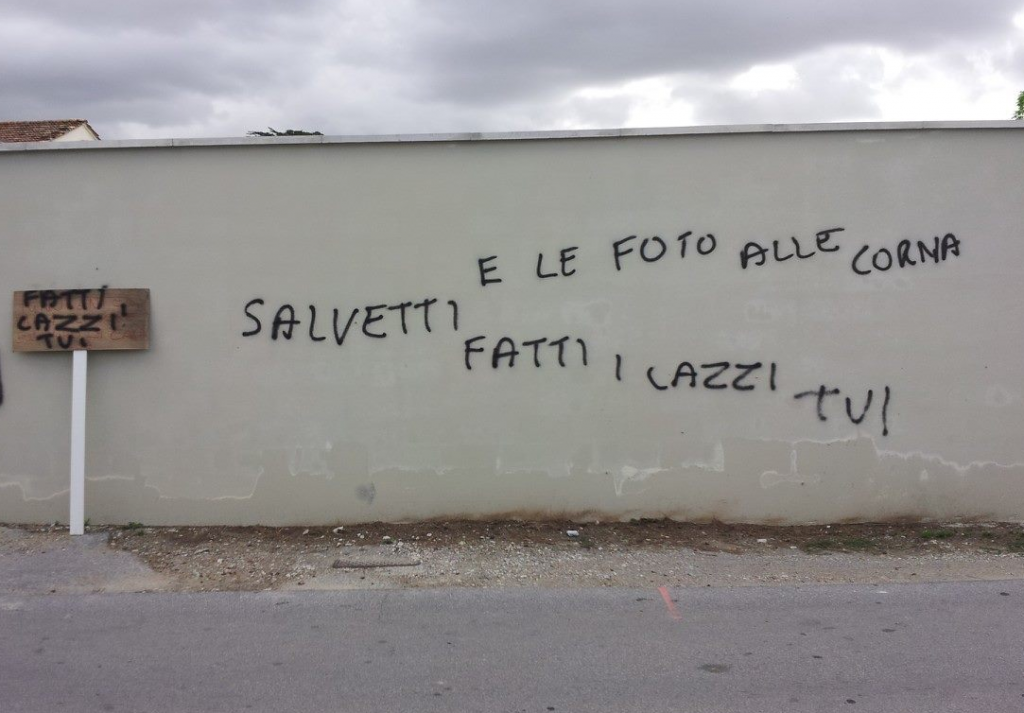 FATTI
CAZZI'
TUI
SALVETTI
FATTI I CAZZI TUI
E LE FOTO ALLE CORNA